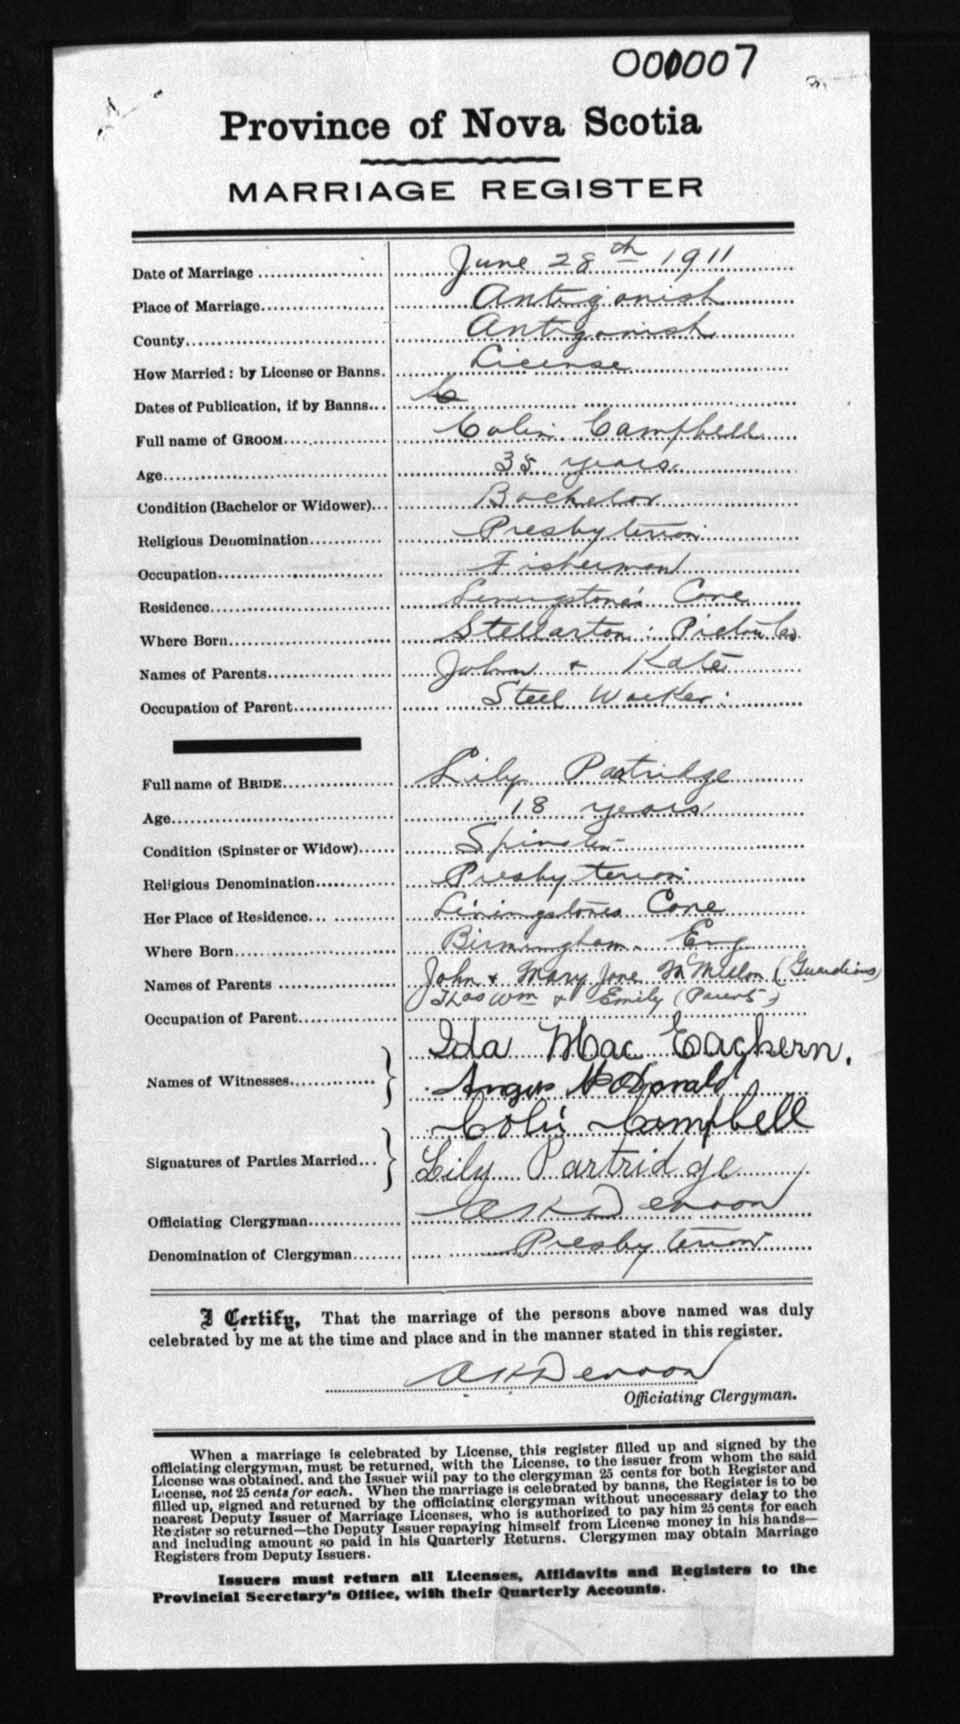 000007
Province of Nova Scotia
MARRIAGE REGISTER
Date of Marriage June 28th 1911
Place of Marriage Antigonish
County Antigonish
How Married: by License or Banns. License
Dates of Publication, if by Banns
Full name of GROOM Colin Campbell
Age 38 years
Condition (Bachelor or Widower) Bachelor
Religious Denomination Presbyterian
Occupation Fisherman
Residence Livingstone's Cove
Where Born Stellarton: Pictou Co
Names of Parents John & Kate
Occupation of Parent Steel Worker
Full name of BRIDE Lily Partridge
Age 18 years
Condition (Spinster or Widow) Spinster
Religious Denomination Presbyterian
Her Place of Residence Livingstones Cove
Where Born Birmingham. Eng
Names of Parents John & Mary Jane McMillan (Guardians)
Thos Wm & Emily (Parents)
Occupation of Parent
Ida Mac Eachern.
Names of Witnesses
Angus McDonald
Colin Campbell
Signatures of Parties Married
Lily Partridge
Officiating Clergyman
Denomination of Clergyman Presbyterian
I Certify, That the marriage of the persons above named was duly
celebrated by me at the time and place and in the manner stated in this register.
Officiating Clergyman.
When a marriage is celebrated by License, this register filled up and signed by the
officiating clergyman, must be returned, with the License, to the issuer from whom the said
License was obtained, and the Issuer will pay to the clergyman 25 cents for both Register and
License, not 25 cents for each. When the marriage is celebrated by banns, the Register is to be
filled up, signed and returned by the officiating clergyman without unnecessary delay to the
nearest Deputy Issuer of Marriage Licenses, who is authorized to pay him 25 cents for each
Register so returned—the Deputy Issuer repaying himself from License money in his hands—
and including amount so paid in his Quarterly Returns. Clergymen may obtain Marriage
Registers from Deputy Issuers.
Issuers must return all Licenses, Affidavits and Registers to the
Provincial Secretary's Office, with their Quarterly Accounts.